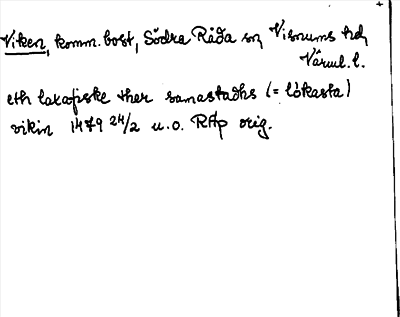 Viken, komm. bost, Södra Råda sn, Visnums hd,
Värml. l.
eth laxafiske ther samastadhs (= Låkasta)
vikin 1479 24/2 u.o. RAp orig.